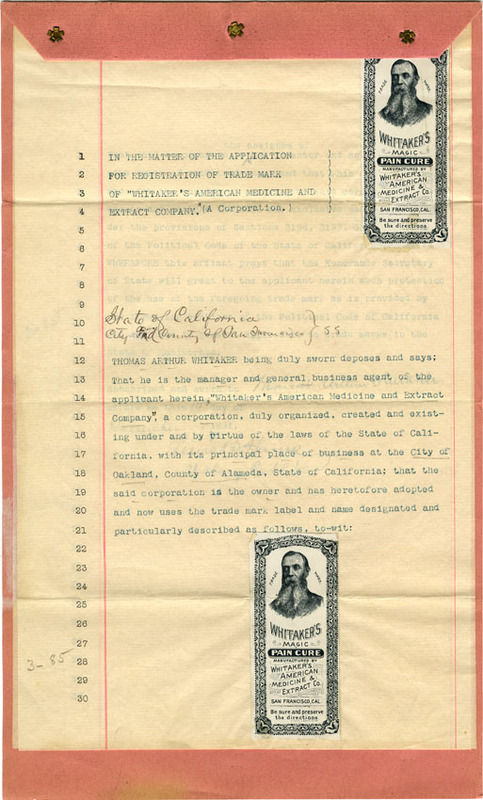 TRADE MARK
WHITAKER'S
MAGIC
PAIN CURE
MANUFACTURED BY
WHITAKER'S
AMERICAN
MEDICINE &
EXTRACT Co.
SAN FRANCISCO, CAL.
Be sure and preserve
the directions
1 IN THE MATTER OF THE APPLICATION
2 FOR REGISTRATION OF TRADE MARK
3 OF "WHITAKER'S AMERICAN MEDICINE AND
4 EXTRACT COMPANY." (A Corporation.)
5
6
7
8
9
10 State of California
11 City and County of San Francisco } S S
12 THOMAS ARTHUR WHITAKER being duly sworn deposes and says:
13 That he is the manager and general business agent of the
14 applicant herein, "Whitaker's American Medicine and Extract
15 Company", a corporation, duly organized, created and exist-
16 ing under and by virtue of the laws of the State of Cali-
17 fornia, with its principal place of business at the City of
18 Oakland, County of Alameda, State of California; that the
19 said corporation is the owner and has heretofore adopted
20 and now uses the trade mark label and name designated and
21 particularly described as follows, to-wit:
22
23
24
25
26
27
28
29
30
3-85
TRADE MARK
WHITAKER'S
MAGIC
PAIN CURE
MANUFACTURED BY
WHITAKER'S
AMERICAN
MEDICINE &
EXTRACT Co.
SAN FRANCISCO, CAL.
Be sure and preserve
the directions